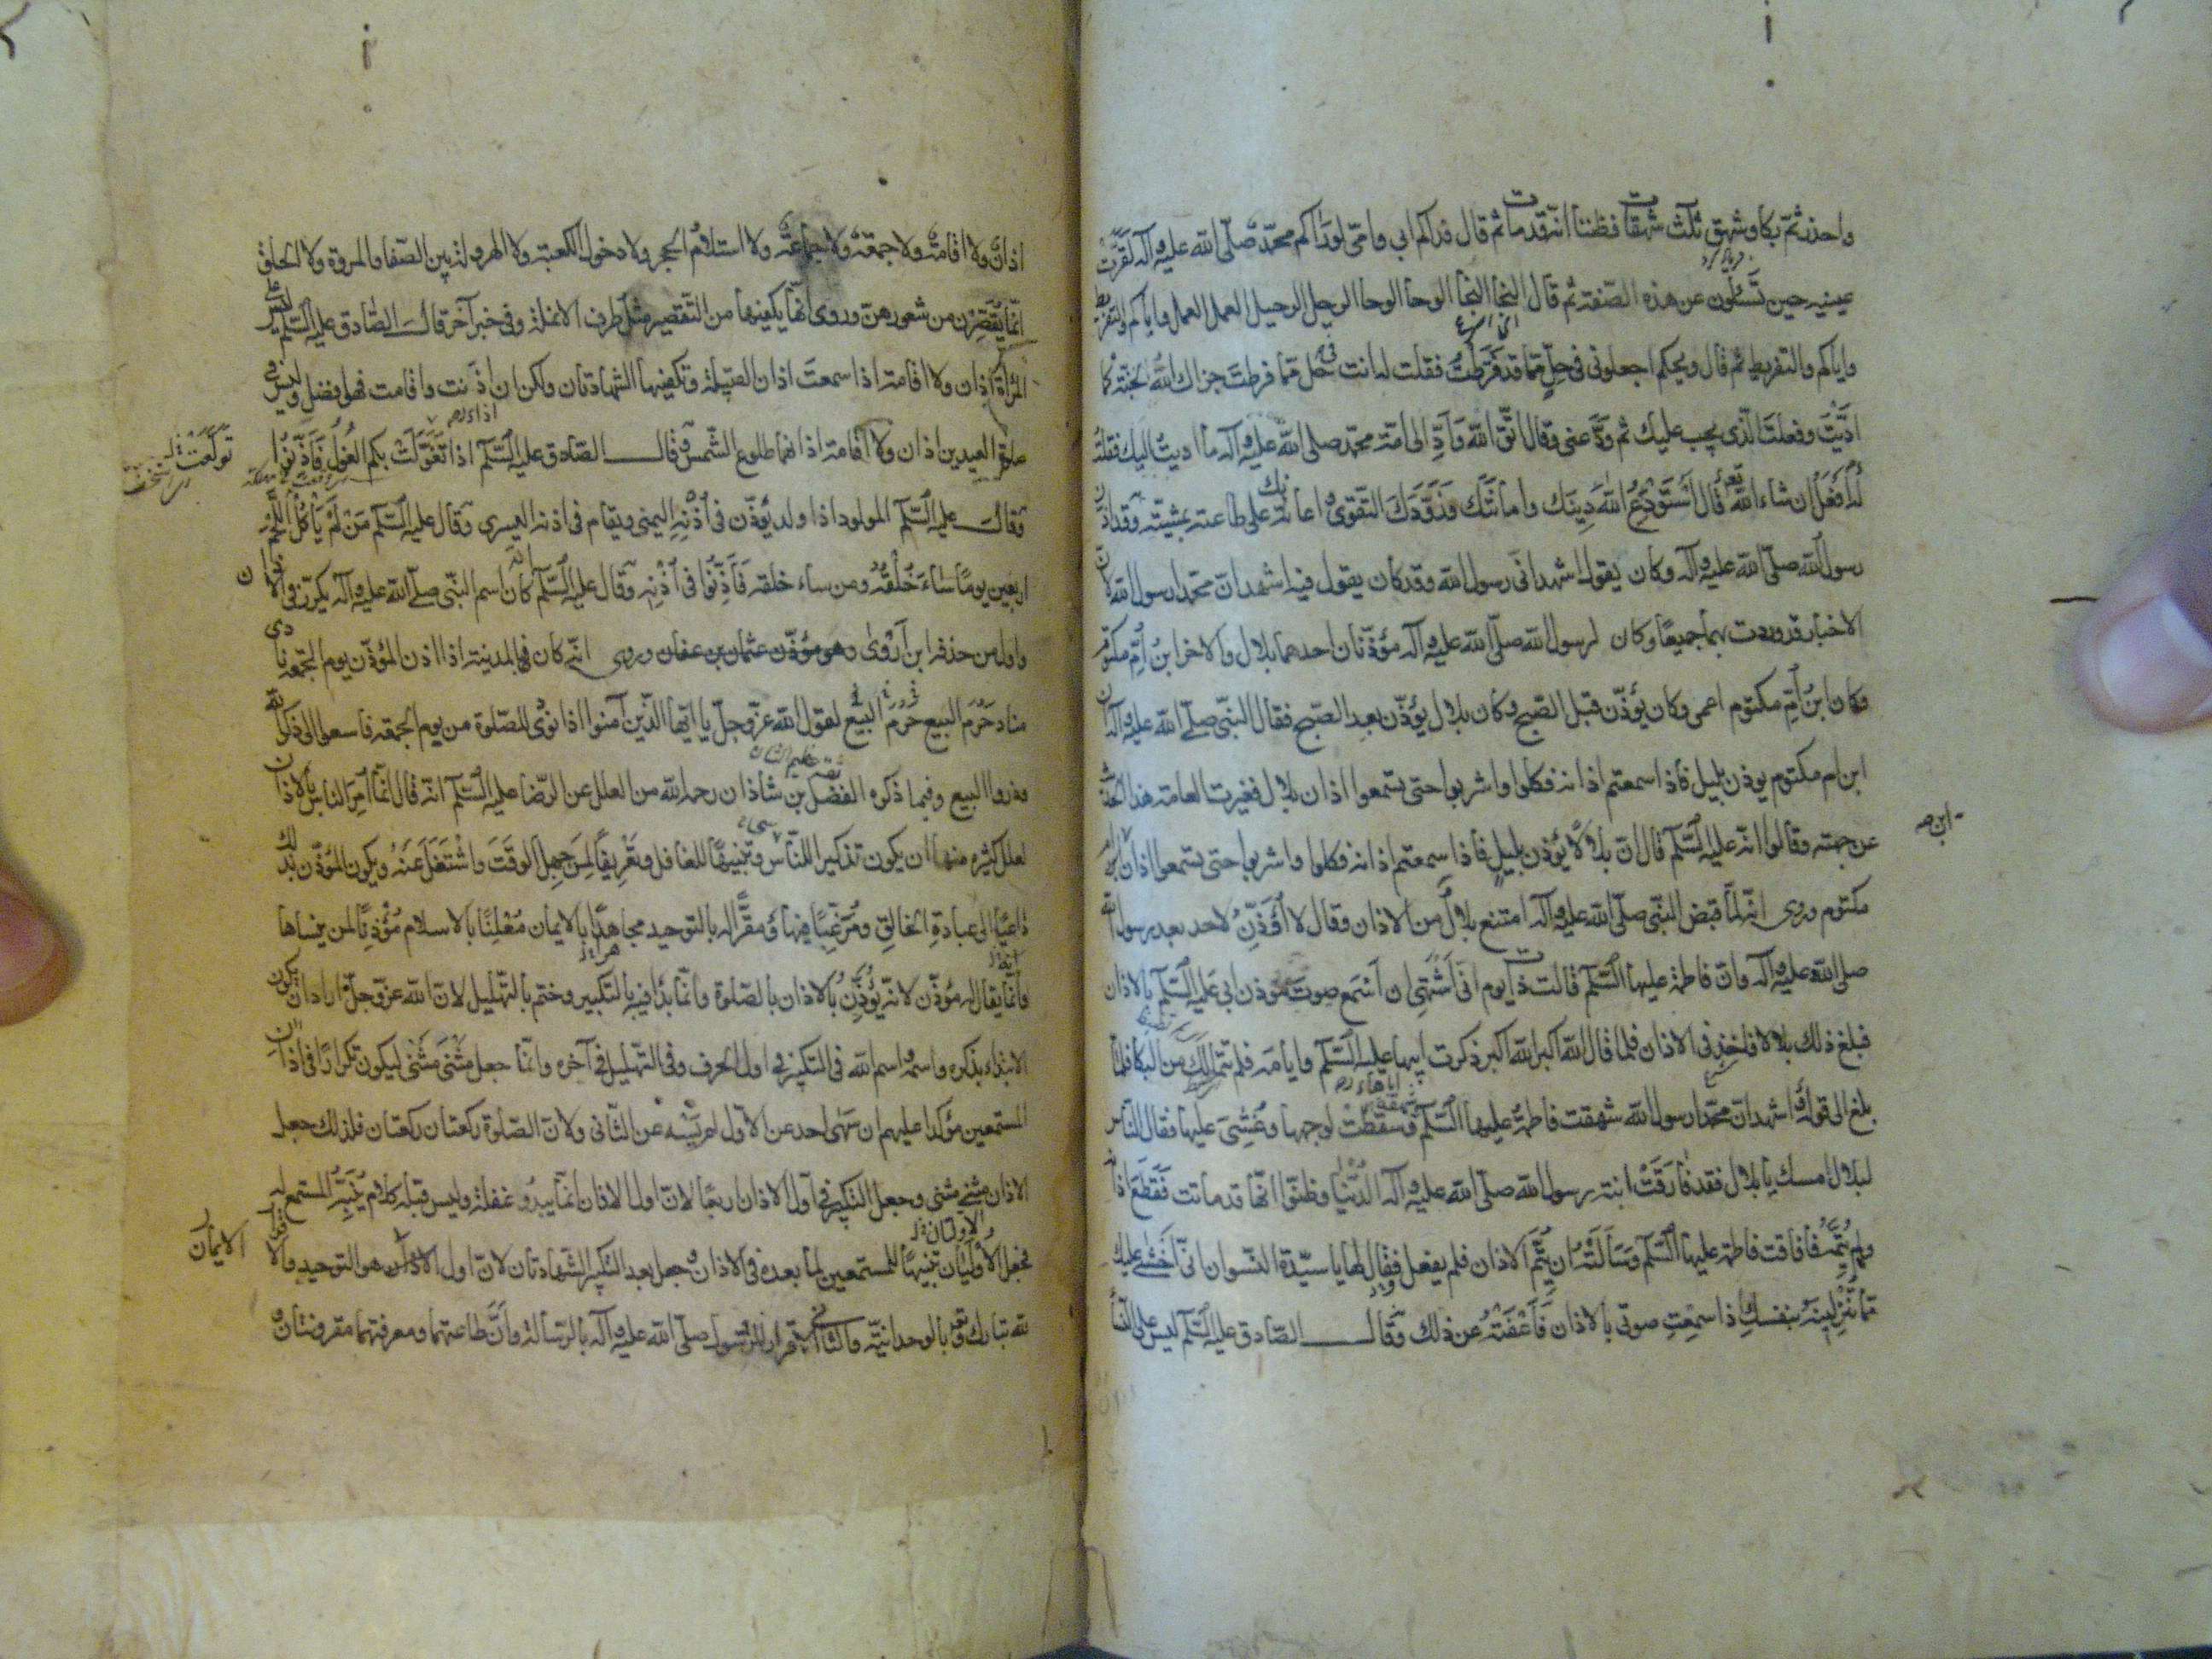 واحذر ثم بكا وشهق ثلث شهقات فظننا انه قد مات ثم قال فداكم ابي وامي لو رآكم محمد صلى الله عليه وآله لقرت
عينيه حين تسئلون عن هذه الصفة ثم قال النجا النجا الوحا الوحا الرحيل الرحيل العمل العمل واياكم والتفريط
واياكم والتفريط ثم قال ويحكم اجعلوني في حل مما قد فرطت فقلت له انت في حل مما فرطت جزاك الله الجنة كما
اديت وفعلت الذي يجب عليك ثم ودعني وقال اتق الله وأدّ الى امة محمد صلى الله عليه وآله ما اديت اليك فقلت
له افعل ان شاء الله قال استودع الله دينك وامانتك وزودك التقوى واعانك على طاعته بمشيته وقد اذن
رسول الله صلى الله عليه وآله وكان يقول اشهد اني رسول الله وقد كان يقول فيه اشهد ان محمدا رسول الله لان
الاخبار قد وردت بهما جميعا وكان لرسول الله صلى الله عليه وآله مؤذنان احدهما بلال والاخر ابن ام مكتوم
وكان ابن ام مكتوم اعمى وكان يؤذن قبل الصبح وكان بلال يؤذن بعد الصبح فقال النبي صلى الله عليه وآله ان
ابن ام مكتوم يوذن بليل فاذا سمعتم اذانه فكلوا واشربوا حتى تسمعوا اذان بلال فغيرت العامة هذا الحديث
عن جهته وقالوا انه عليه السلم قال ان بلالا يؤذن بليل فاذا سمعتم اذانه فكلوا واشربوا حتى تسمعوا اذان ابن ام
ابن صه
مكتوم وروي انه لما قبض النبي صلى الله عليه وآله امتنع بلال من الاذان وقال لا اؤذن لاحد بعد رسول الله
صلى الله عليه وآله وان فاطمة عليها السلم قالت ذات يوم اني اشتهي ان اسمع صوت مؤذن ابي عليه السلم بالاذان
فبلغ ذلك بلالا فاخذ في الاذان فلما قال الله اكبر الله اكبر ذكرت ابيها عليه السلم وايامه فلم تتمالك من البكا فلما
بلغ الى قوله اشهد ان محمدا رسول الله شهقت فاطمة عليها السلم وسقطت لوجهها وغشي عليها فقال الناس
لبلال امسك يا بلال فقد فارقت ابنة رسول الله صلى الله عليه وآله الدنيا وظنوا انها قد ماتت فقطع اذانه
ولم يتمه فافاقت فاطمة عليها السلم وسألته ان يتم الاذان فلم يفعل وقال لها يا سيدة النسوان اني اخشى عليك
مما تنزلينه بنفسك اذا سمعت صوتي بالاذان فاعفته عن ذلك وقال الصادق عليه السلم ليس على النسا
اذان ولا اقامة ولا جمعة ولا جماعة ولا استلام الحجر ولا دخول الكعبة ولا الهرولة بين الصفا والمروة ولا الحلق
انما يقصرن من شعورهن وروى انما يكفيها من التقصير مثل طرف الانملة وفي خبر آخر قال الصادق عليه السلم ليس على
المرأة اذان ولا اقامة اذا سمعت اذان القبيلة وتكفيها الشهادتان ولكن ان اذنت واقامت فهو افضل وليس في
صلوة العيدين اذان ولا اقامة اذانهما طلوع الشمس وقال الصادق عليه السلم اذا تغولت بكم الغول فاذنوا
تولعت
وقال عليه السلم المولود اذا ولد يؤذن في اذنه اليمنى ويقام في اذنه اليسرى وقال عليه السلم من لم ياكل اللحم
اربعين يوما ساء خلقه ومن ساء خلقه فاذنوا في اذنه وقال عليه السلم كان اسم النبي صلى الله عليه وآله يكرر في الاذان
واول من حذفه ابن اروى وهو مؤذن عثمان بن عفان وروى انه كان في المدينة اذا اذن المؤذن يوم الجمعة نادى
مناد حرم البيع حرم البيع لقول الله عز وجل يا ايها الذين آمنوا اذا نودى للصلوة من يوم الجمعة فاسعوا الى ذكر الله
وذروا البيع وفيما ذكره الفضل بن شاذان رحمه الله من العلل عن الرضا عليه السلم انه قال انما امر الناس بالاذان
لعلل كثيرة منها ان يكون تذكيرا للناس وتنبيها للغافل وتعريفا لمن جهل الوقت واشتغل عنه ويكون المؤذن بذلك
داعيا الى عبادة الخالق ومرغبا فيها ومقرا له بالتوحيد مجاهرا بالايمان معلنا بالاسلام مؤذنا لمن ينساها
وانما يقال له مؤذن لانه يؤذن بالاذان بالصلوة وانما بدا فيه بالتكبير وختم بالتهليل لان الله عز وجل اراد ان يكون
الابتداء بذكره واسمه واسم الله في التكبير في اول الحرف وفي التهليل في آخره وانما جعل مثنى مثنى ليكون تكرارا في اذان
المستمعين مؤكدا عليهم ان سهى احد عن الاول لم يسه عن الثاني ولان الصلوة ركعتان ركعتان فلذلك جعل
الاذان مثنى مثنى وجعل التكبير في اول الاذان اربعا لان اول الاذان انما يبدو غفلة وليس قبله كلام ينبه المستمع له
فجعل الاوليان تنبيها للمستمعين لما بعده في الاذان وجعل بعد التكبير الشهادتان لان اول الايمان هو التوحيد والاقرار
الايمان
لله تبارك وتعالى بالوحدانية والثاني الاقرار للرسول صلى الله عليه وآله بالرسالة وان طاعتهما ومعرفتهما مقرونتان